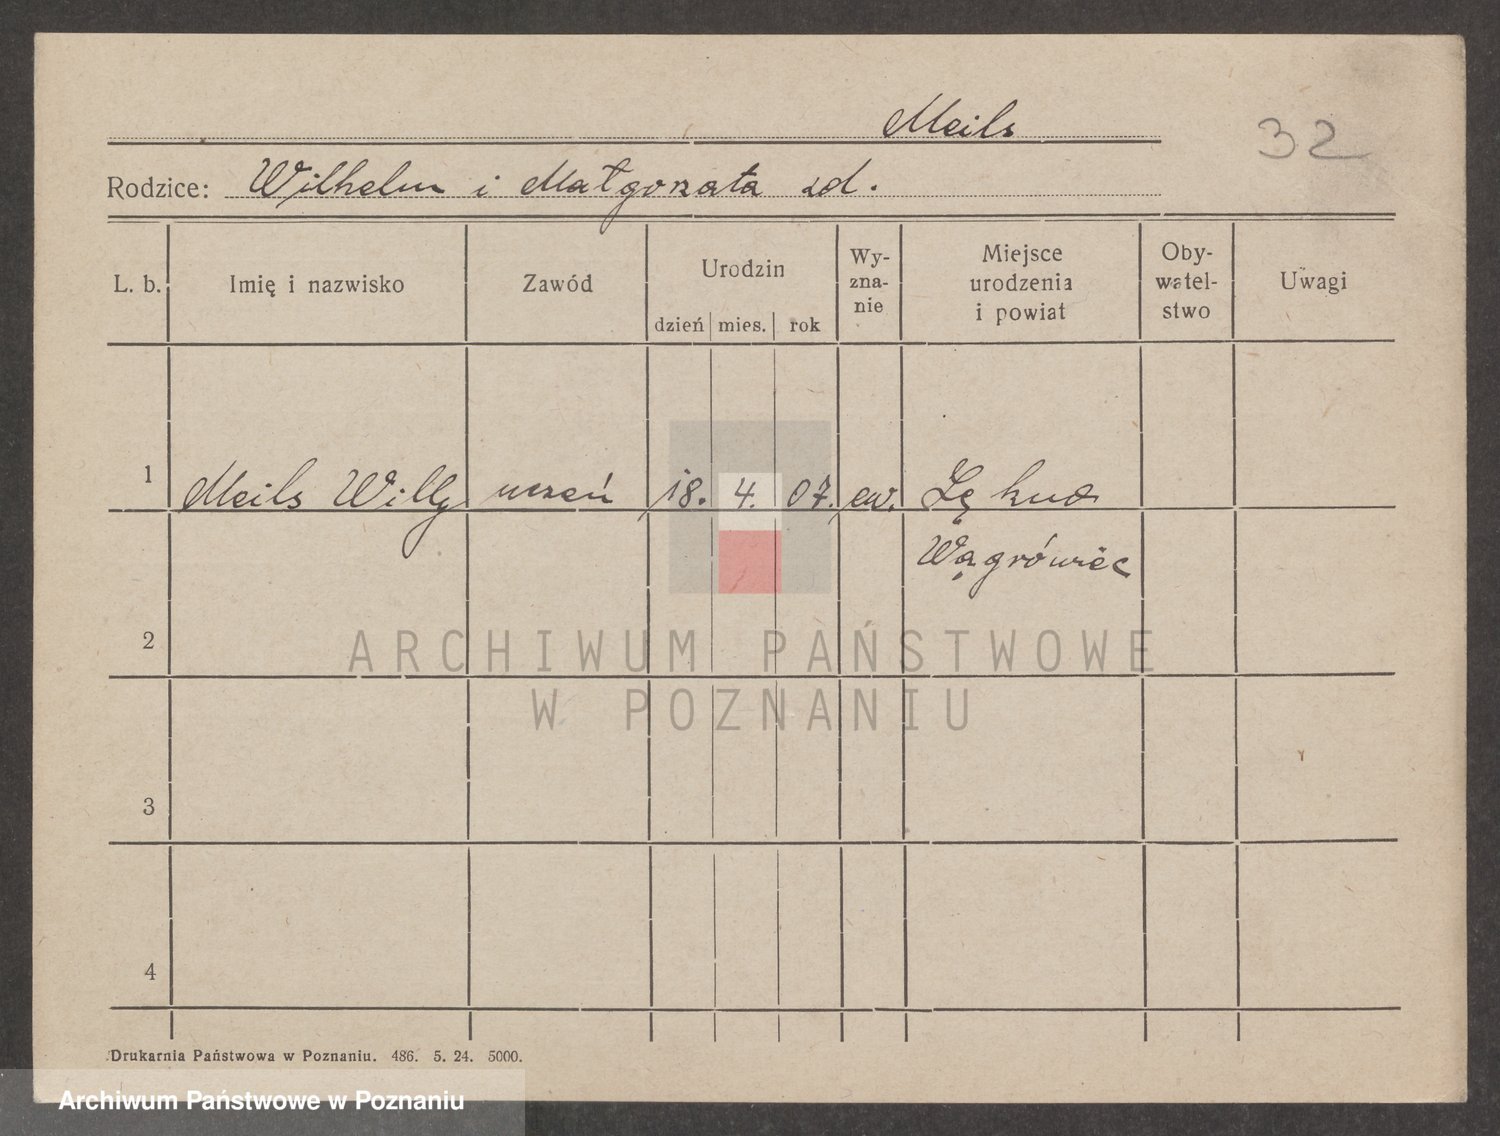 Meils
32
Rodzice: Wilhelm i Małgorzata zd.
L. b. Imię i nazwisko Zawód Urodzin dzień mies. rok Wy-zna-nie Miejsce urodzenia i powiat Oby-watel-stwo Uwagi
1 Meils Willy uczeń 18. 4. 07. ew.
Wągrówiec
2
ARCHIWUM PAŃSTWOWE
W POZNANIU
3
4
Drukarnia Państwowa w Poznaniu. 486. 5. 24. 5000.
Archiwum Państwowe w Poznaniu